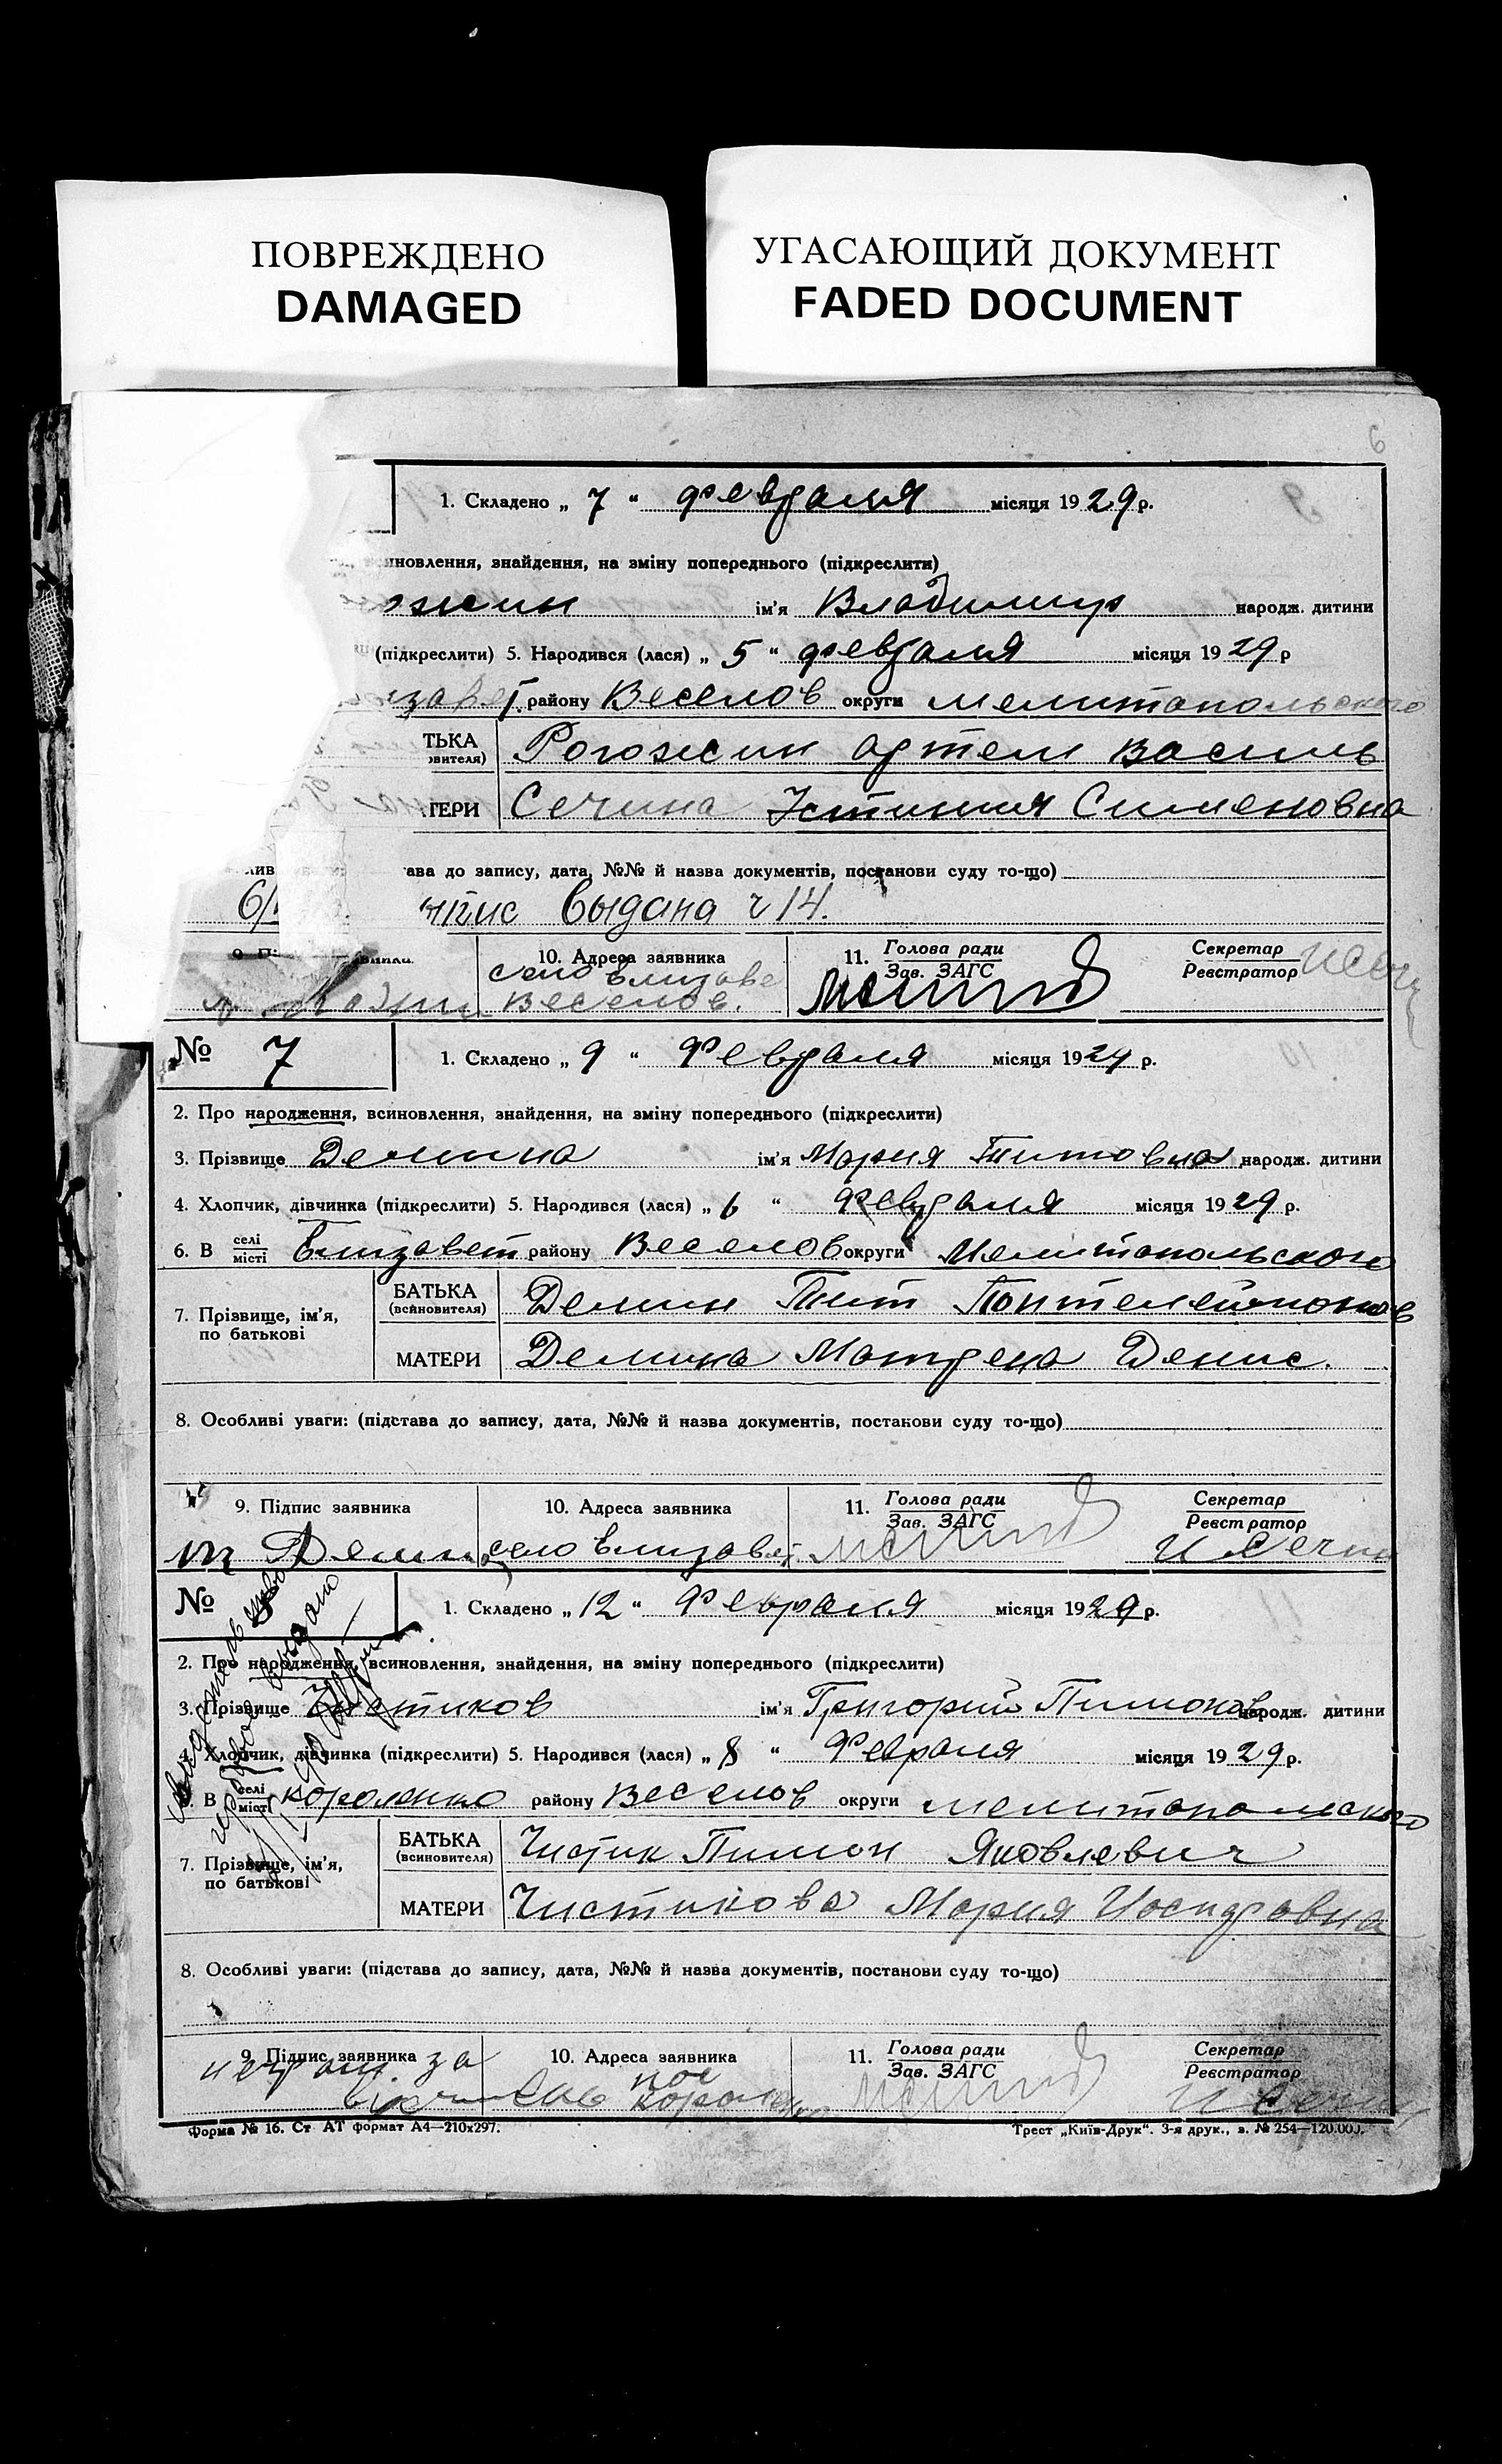 ПОВРЕЖДЕНО
DAMAGED
УГАСАЮЩИЙ ДОКУМЕНТ
FADED DOCUMENT
6
1. Складено „ 7 “ февраля місяця 1929 р.
иновлення, знайдення, на зміну попереднього (підкреслити)
ожин ім'я Владимир народж. дитини
(підкреслити) 5. Народився (лася) „ 5 “ февраля місяця 1929 р
завет. району Веселов округи мелитопольского
ТЬКА Рогожин Артем Василь
овителя)
ТЕРИ Сечина Устиния Сименовна
лив ава до запису, дата, №№ й назва документів, постанови суду то-що)
пис выдана ч 14.
10. Адреса заявника 11. Голова ради Секретар
Зав. ЗАГС Реєстратор
село Елизаве
Веселов.
№ 7 1. Складено „ 9 “ Февраля місяця 1929 р.
2. Про народження, всиновлення, знайдення, на зміну попереднього (підкреслити)
3. Прізвище Демина ім'я Мария Титовна народж. дитини
4. Хлопчик, дівчинка (підкреслити) 5. Народився (лася) „ 6 “ Февраля місяця 1929 р.
6. В селі Елизавет району Веселов округи Мелитопольского
місті
7. Прізвище, ім'я, по батькові
БАТЬКА Демин Тит Пантелеймонов
(всиновителя)
МАТЕРИ Демина Матрена Денис.
8. Особливі уваги: (підстава до запису, дата, №№ й назва документів, постанови суду то-що)
9. Підпис заявника 10. Адреса заявника 11. Голова ради Секретар
Зав. ЗАГС Реєстратор
т Демин село Елизавет. И Сечин
№ 8 1. Складено „ 12 “ Февраля місяця 1929 р.
2. Про народження, всиновлення, знайдення, на зміну попереднього (підкреслити)
3. Прізвище Чистиков ім'я Григорий Пимонов народж. дитини
4. Хлопчик, дівчинка (підкреслити) 5. Народився (лася) „ 8 “ Февраля місяця 1929 р.
6. В селі короленко району Веселов округи мелитопольского
місті
7. Прізвище, ім'я, по батькові
БАТЬКА Чистик Пимон Яковлевич
(всиновителя)
МАТЕРИ Чистикова Мария Иосифовна
8. Особливі уваги: (підстава до запису, дата, №№ й назва документів, постанови суду то-що)
9. Підпис заявника 10. Адреса заявника 11. Голова ради Секретар
Зав. ЗАГС Реєстратор
неграм. за пос Короленко И Сечин
Форма № 16. Ст АТ формат А4—210х297. Трест „Київ-Друк“. 3-я друк., з. № 254—120.000.